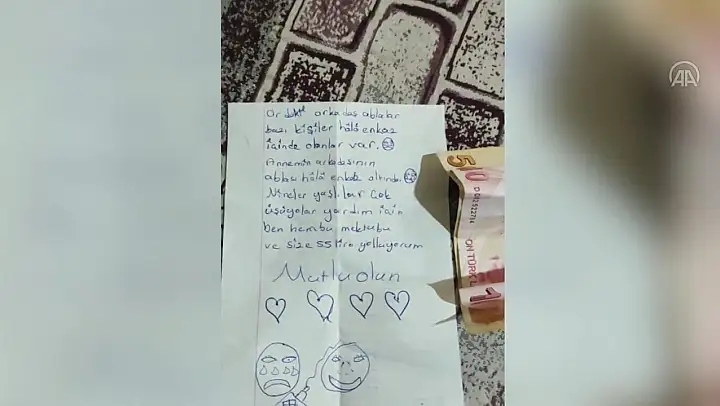 Ordaki arkadaş ablalar
bazı kişiler hâlâ enkaz
içinde olanlar var.
Annemin arkadaşının
ablası hâlâ enkaz altında.
Nineler yaşlılar çok
üşüyolar yardım için
ben hem bu mektubu
ve size 55 lira yolluyorum
Mutlu olun
AA
50
ON TÜRK L
1